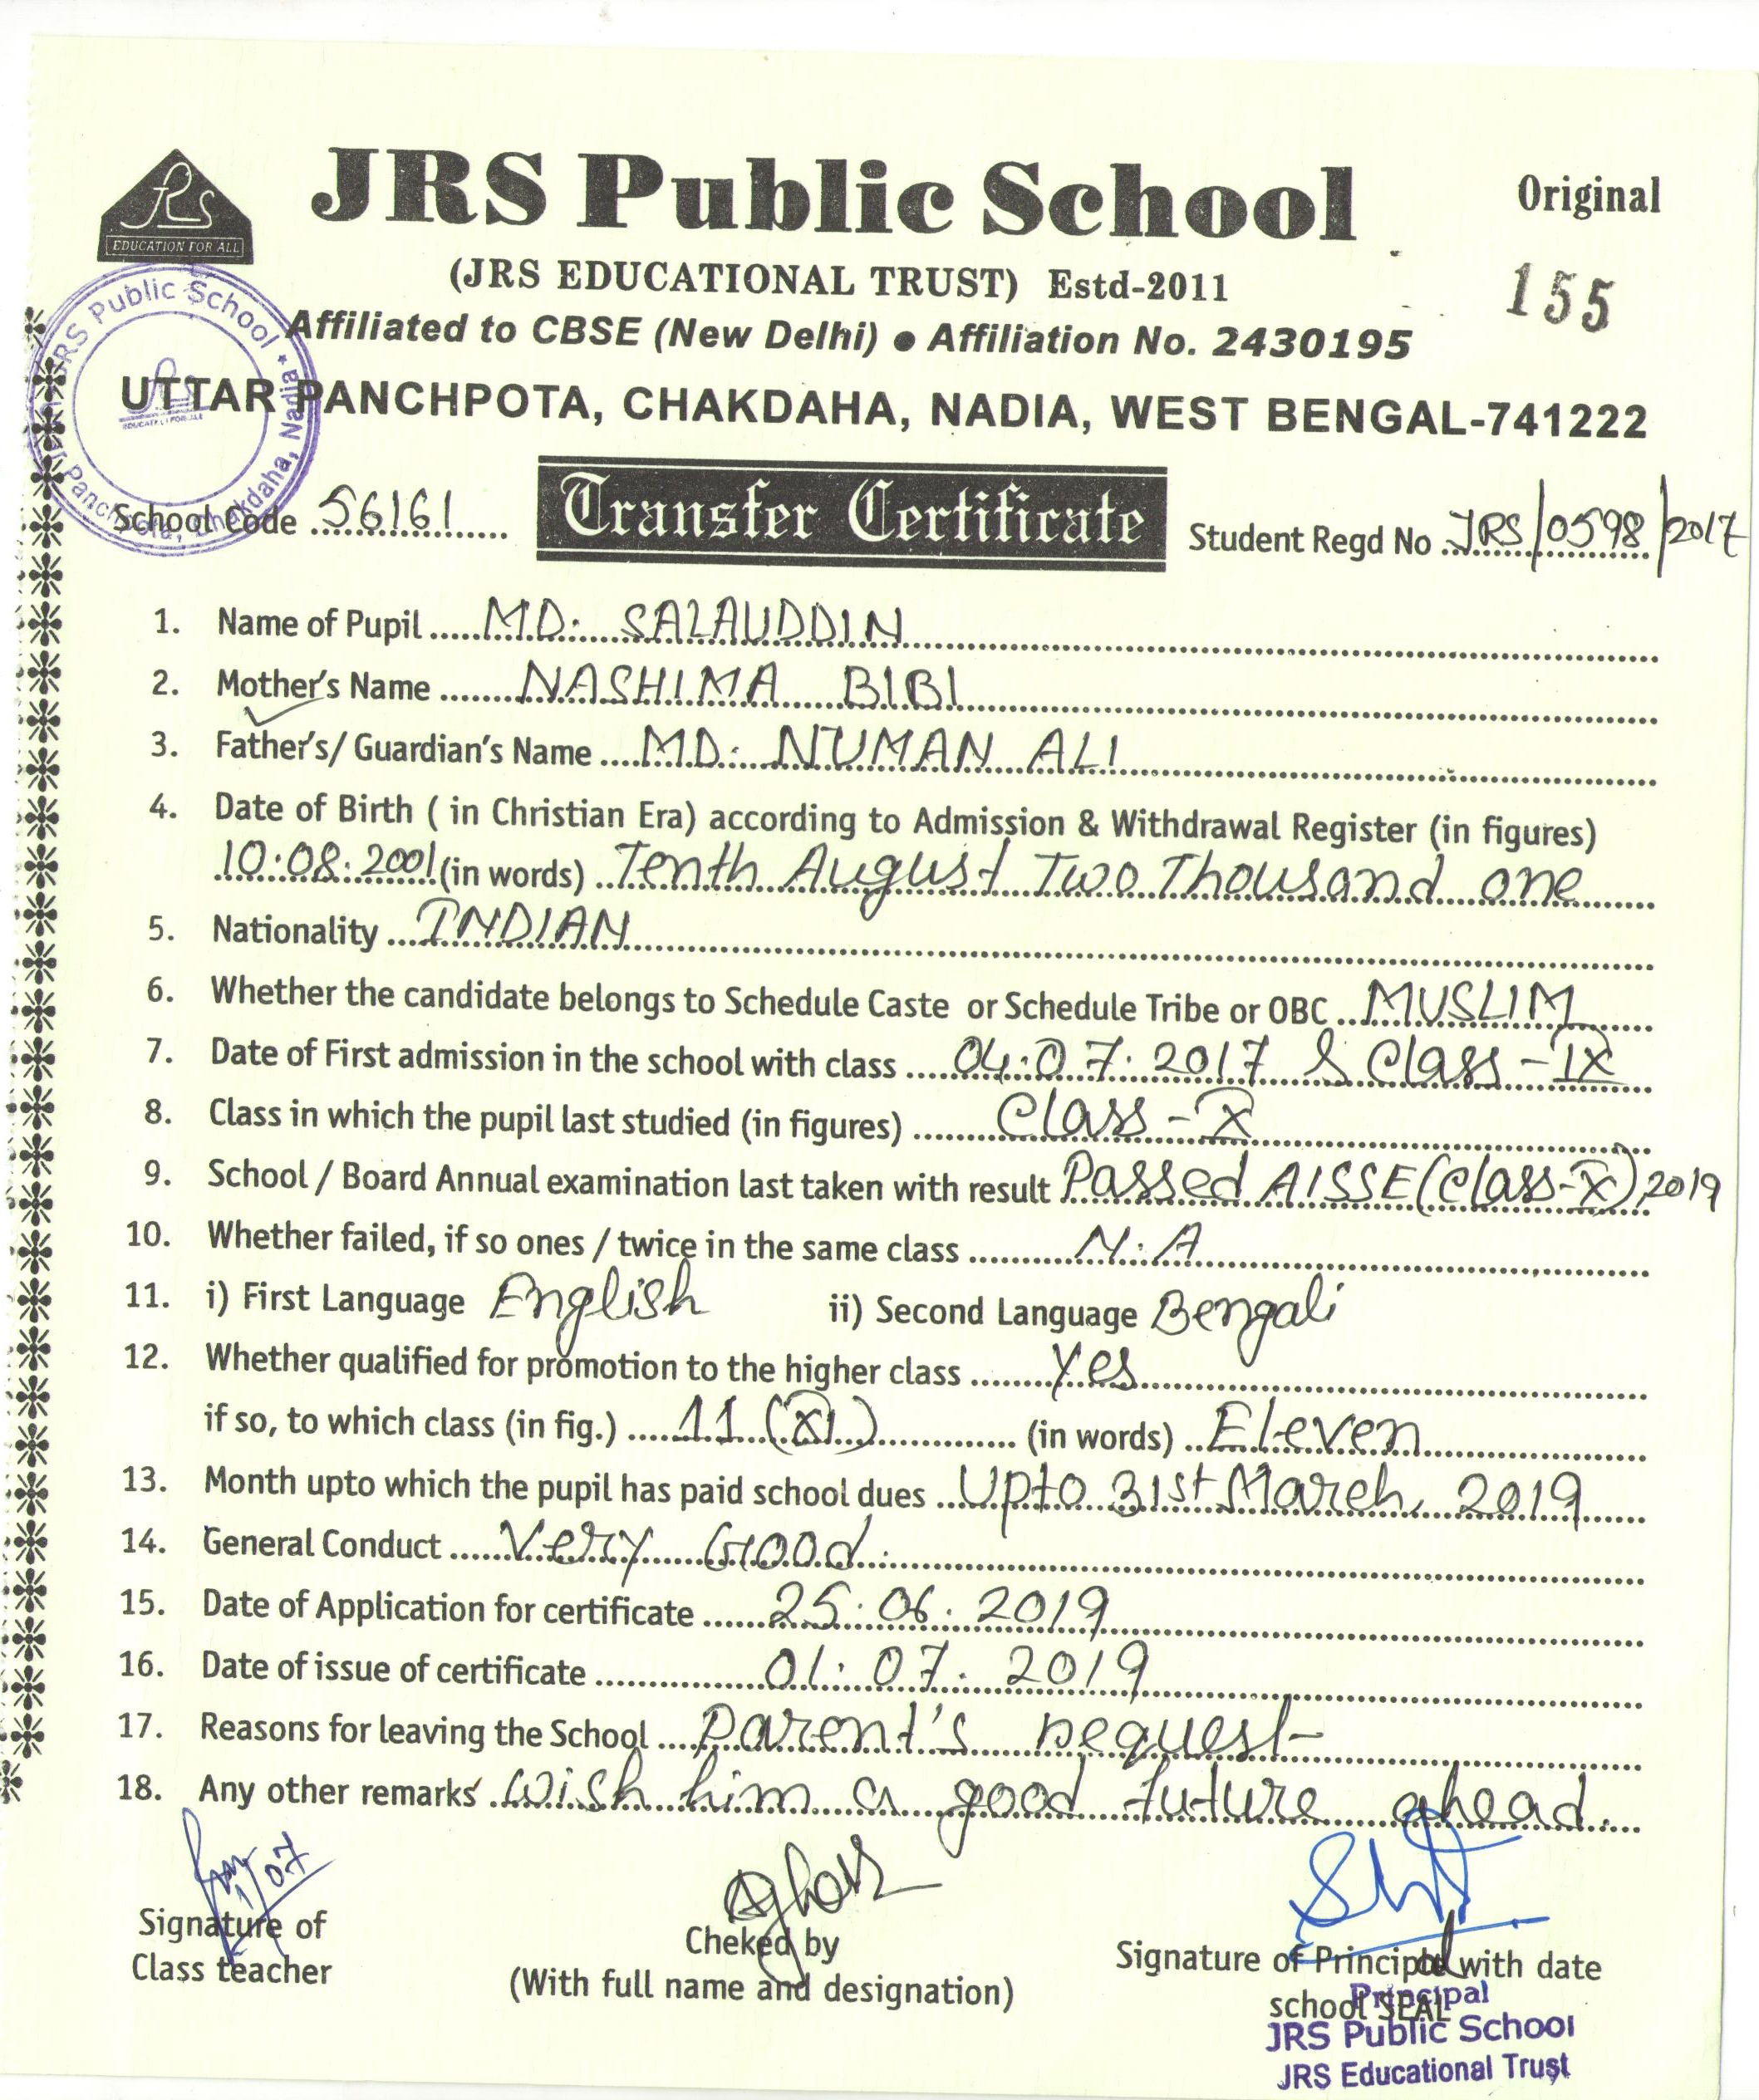 JRS Public School
Original
JRS
EDUCATION FOR ALL
(JRS EDUCATIONAL TRUST) Estd-2011
155
Affiliated to CBSE (New Delhi) ● Affiliation No. 2430195
UTTAR PANCHPOTA, CHAKDAHA, NADIA, WEST BENGAL-741222
JRS Public School * Panchpota, Chakdaha, Nadia
School Code 56161 Transfer Certificate Student Regd No JRS/0598/2017
1. Name of Pupil MD. SALAUDDIN
2. Mother's Name NASHIMA BIBI
3. Father's/ Guardian's Name MD. NUMAN ALI
4. Date of Birth ( in Christian Era) according to Admission & Withdrawal Register (in figures)
10.08.2001 (in words) Tenth August Two Thousand one
5. Nationality INDIAN
6. Whether the candidate belongs to Schedule Caste or Schedule Tribe or OBC MUSLIM
7. Date of First admission in the school with class 04.07.2017 & Class - IX
8. Class in which the pupil last studied (in figures) Class - X
9. School / Board Annual examination last taken with result Passed AISSE (Class-X), 2019
10. Whether failed, if so ones / twice in the same class N.A
11. i) First Language English ii) Second Language Bengali
12. Whether qualified for promotion to the higher class Yes
if so, to which class (in fig.) 11 (XI) (in words) Eleven
13. Month upto which the pupil has paid school dues Upto 31st March, 2019
14. General Conduct Very Good.
15. Date of Application for certificate 25.06.2019
16. Date of issue of certificate 01.07.2019
17. Reasons for leaving the School Parent's request
18. Any other remarks Wish him a good future ahead.
1/07
Signature of
Class teacher
Cheked by
(With full name and designation)
Signature of Principal with date
school SEAL
Principal
JRS Public School
JRS Educational Trust